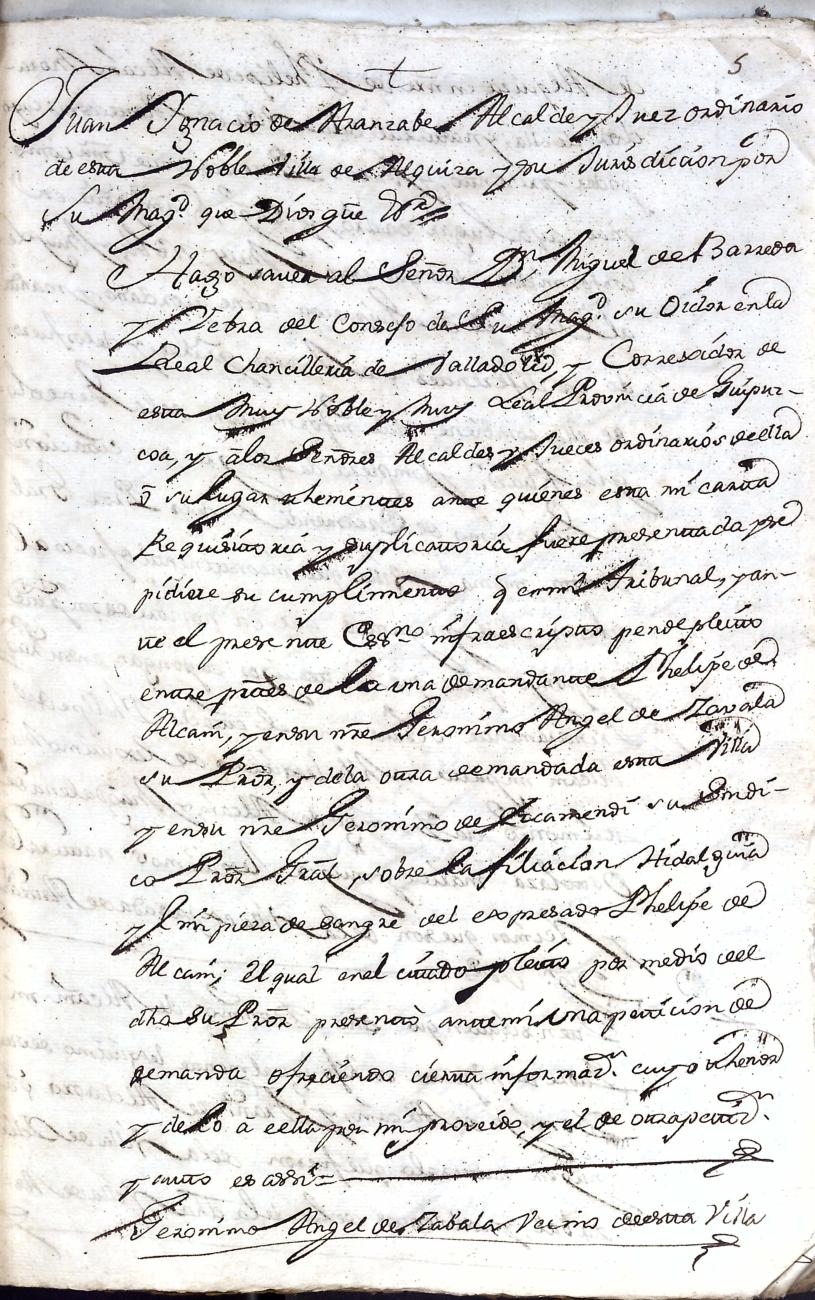 5
Juan Ygnacio de Aranzabe Alcalde y Juez ordinario
de esta Noble Villa de Alquiza y su Jurisdicion por
Su Magd. que Dios gue
Hago saver al Señor Dn. Miguel de Barreda
y Yebra del Consejo de Su Magd. su Oidor en la
Real Chancilleria de Valladolid, y Correxidor de
esta Muy Noble y Muy Leal Provincia de Guipuz-
coa, y a los Señores Alcaldes y Jueces ordinarios de ella
o su lugar thenientes ante quienes esta mi carta
Requisitoria y suplicattoria fuere presentada y se
pidiere su cumplimiento q en mi Tribunal, y an-
te el presente Essno. infraescripto pende pleito
entre partes de la una demandante Phelipe de
Alcain, y en su nre Jeronimo Angel de Zavala
su Pror, y de la otra demandada esta Villa
y en su nre Jeronimo de su Sindi-
co Pror Gral, sobre la filiacion Hidalguia
y Limpieza de sangre del expresado Phelipe de
Alcain; el qual en el citado pleito por medio del
dho su Pror presentò ante mi una peticion de
demanda ofreciendo cierta informazn. cuyo thenor
y de lo a ella por mi proveido, y el de otra petizn.
y auto es assi
Jeronimo Angel de Zabala Vecino de esta Villa